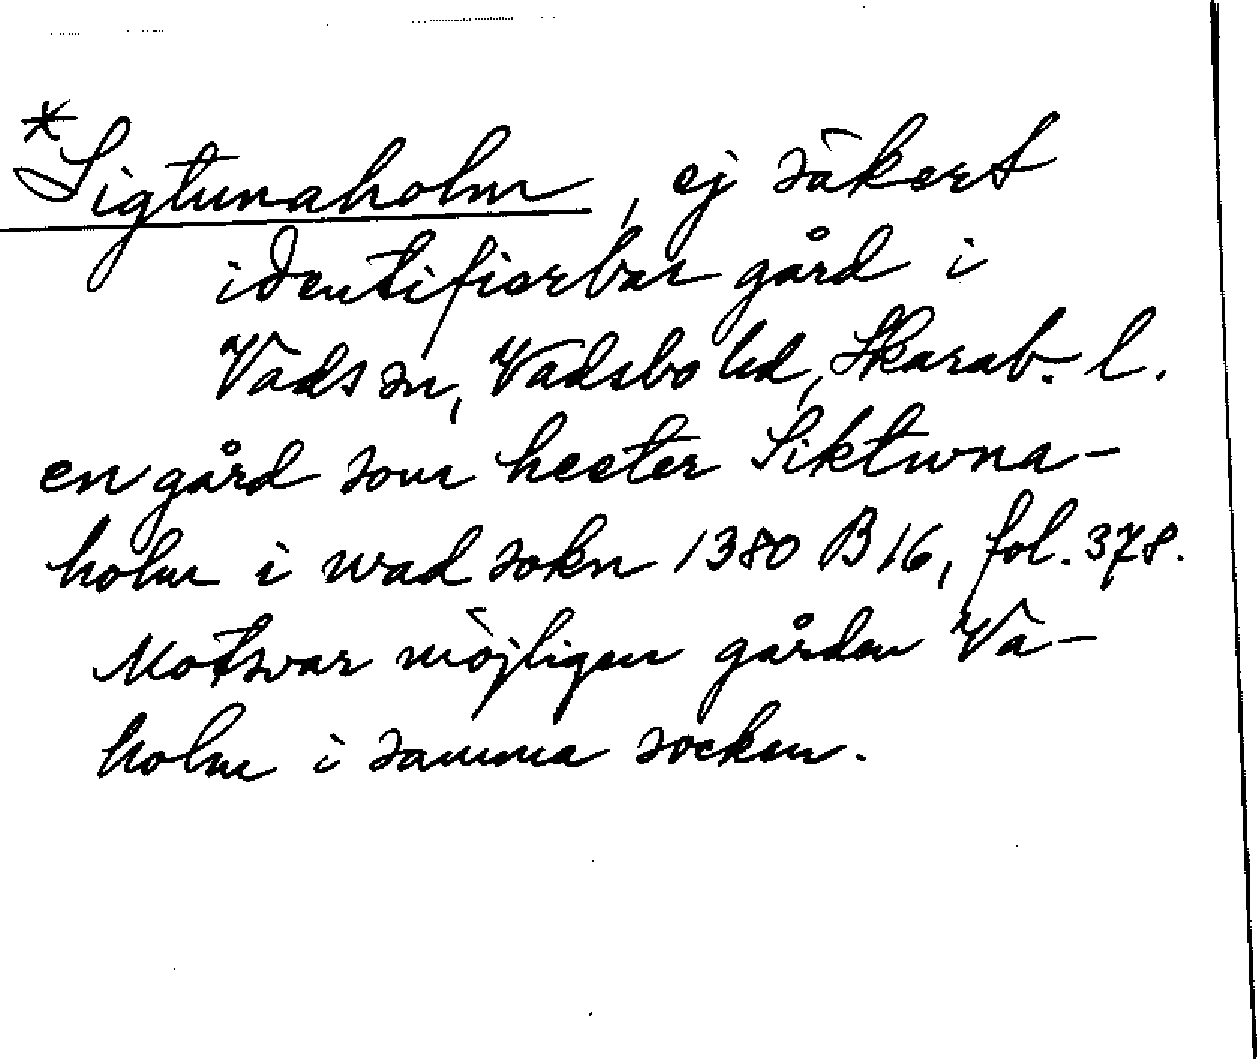 *Sigtunaholm, ej säkert
identifierbar gård i
Vads sn, Vadsbo hd, Skarab. l.
en gård som heeter Siktuna-
holm i wad sokn 1380 B 16, fol. 378.
Motsvar möjligen gården Va-
holm i samma socken.